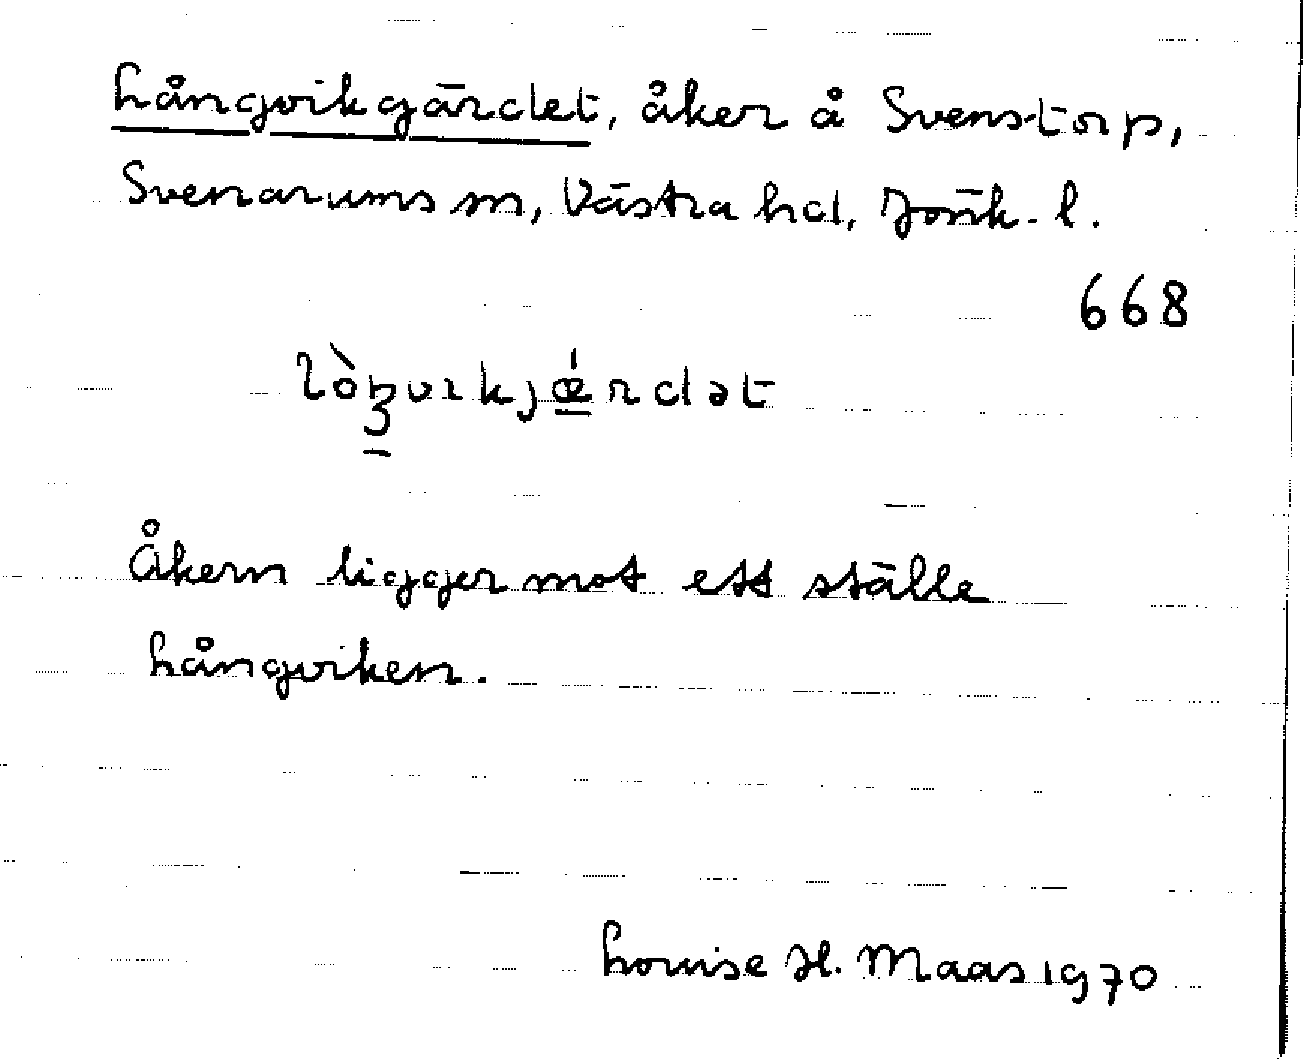 Långvikgärdet, åker å Svenstorp,
Svenarums sn, Västra hd, Jönk. l.
668
Åkern ligger mot ett ställe
Långviken.
Louise H. Maas 1970